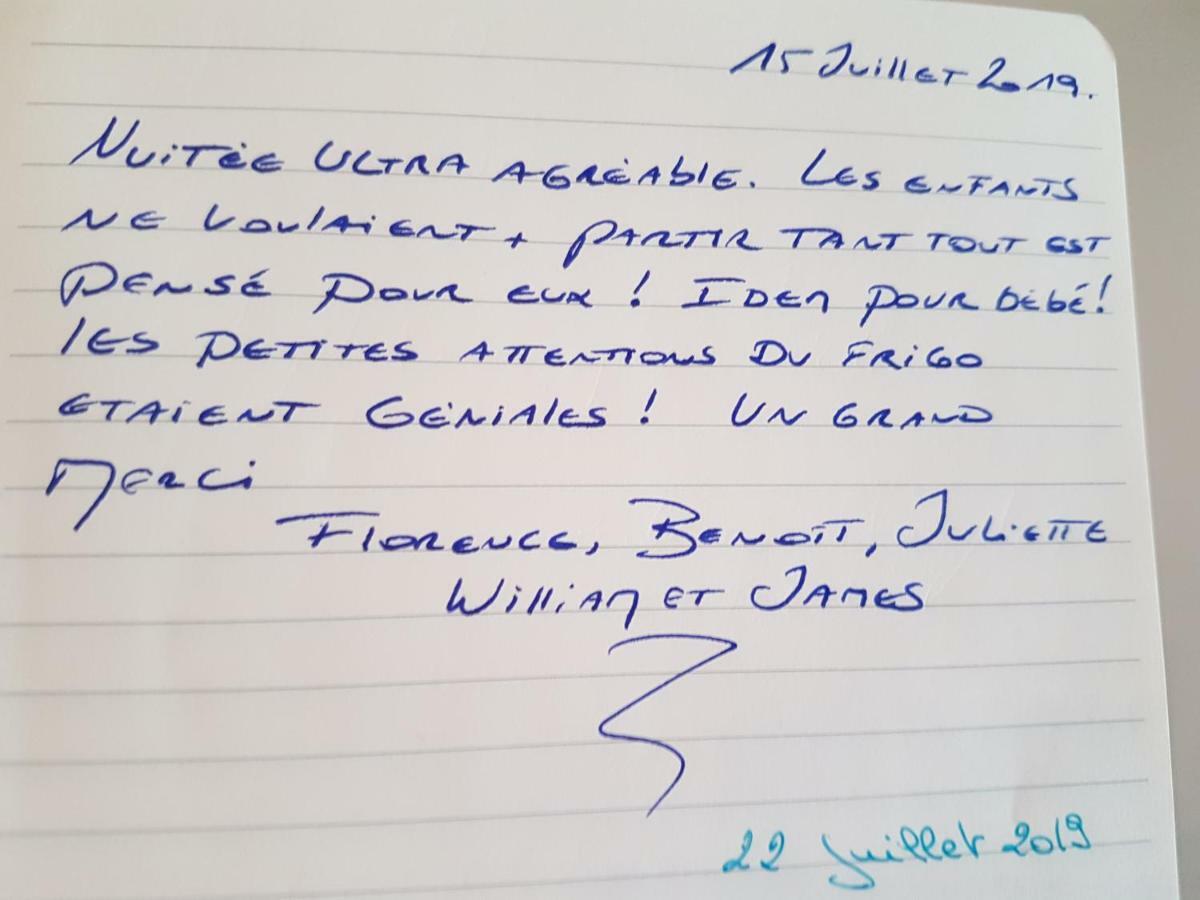 15 Juillet 2019.
Nuitée ultra agréable. Les enfants
ne voulaient + partir tant tout est
pensé pour eux ! Idem pour bébé !
les petites attentions du frigo
etaient géniales ! Un grand
Merci
Florence, Benoît, Juliette
William et James
22 juillet 2019